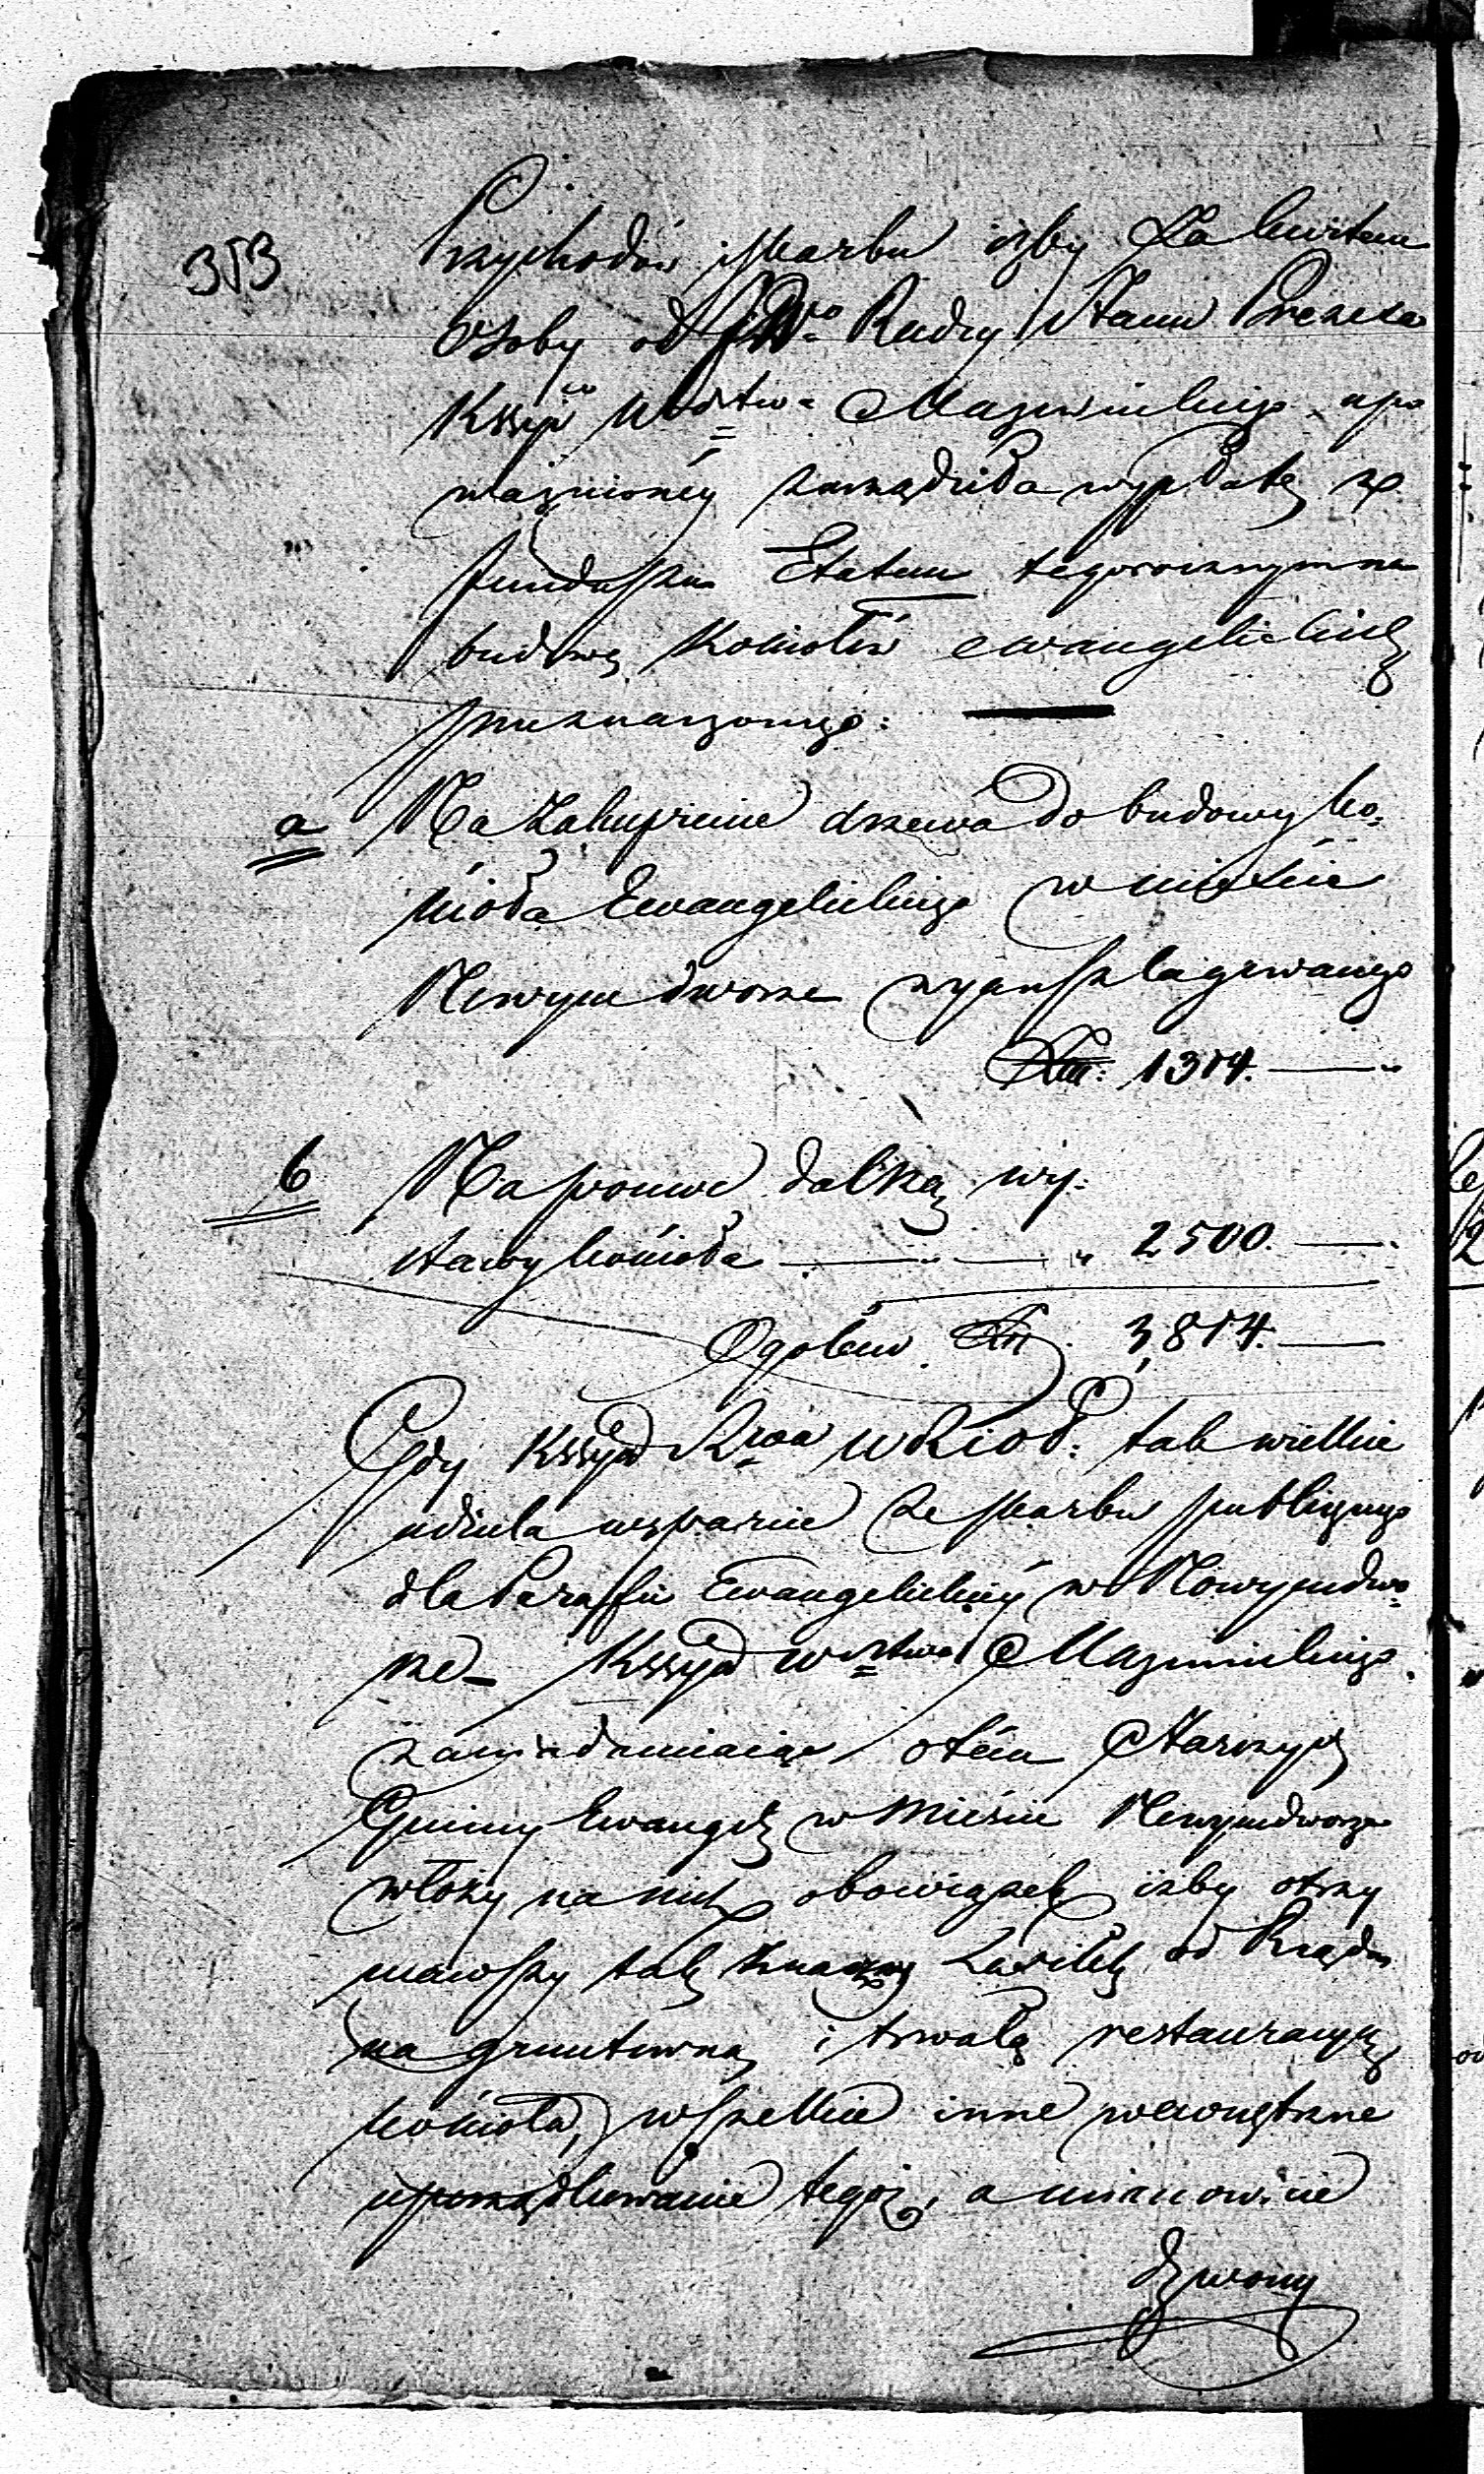 353
Przychodów i skarbu izby za kwitem
osoby od JWo Radcy Stanu Prezesa
Kssyi Wdztwa Mazowieckiego upo
ważnioney zarządziła wypłatę z
funduszu Etatem tegorocznym na
budowę Kościołów ewangelickich
przeznaczonego:
a Na Zakupienie drzewa do budowy ko=
ścioła Ewangelickiego w mieście
Nowym dworze wyanszlagowanego
Złł: 1314. —
b Na pomoc dalszey wy=
stawy kościoła — " — " 2500. —
Ogółem Złł. 3,814. —
Gdy Kssya Rwa W Rzod: tak wielkie
udziela wsparcie ze skarbu publicznego
dla Paraffii Ewangelickiey w Nowymdwo=
rze — Kssya Wdztwa Mazowieckiego
zawiadamiaiąc o tém Starszych
Gminy Ewangch w Mieście Nowymdworze
włoży na nich obowiązek iżby otrzy
mawszy tak znaczny zasiłek od Rządu
na gruntowną i trwałą restauracyą
kościoła, wszelkie inne wewnętrzne
uporządkowanie tegoż, a mianowicie
dzwony